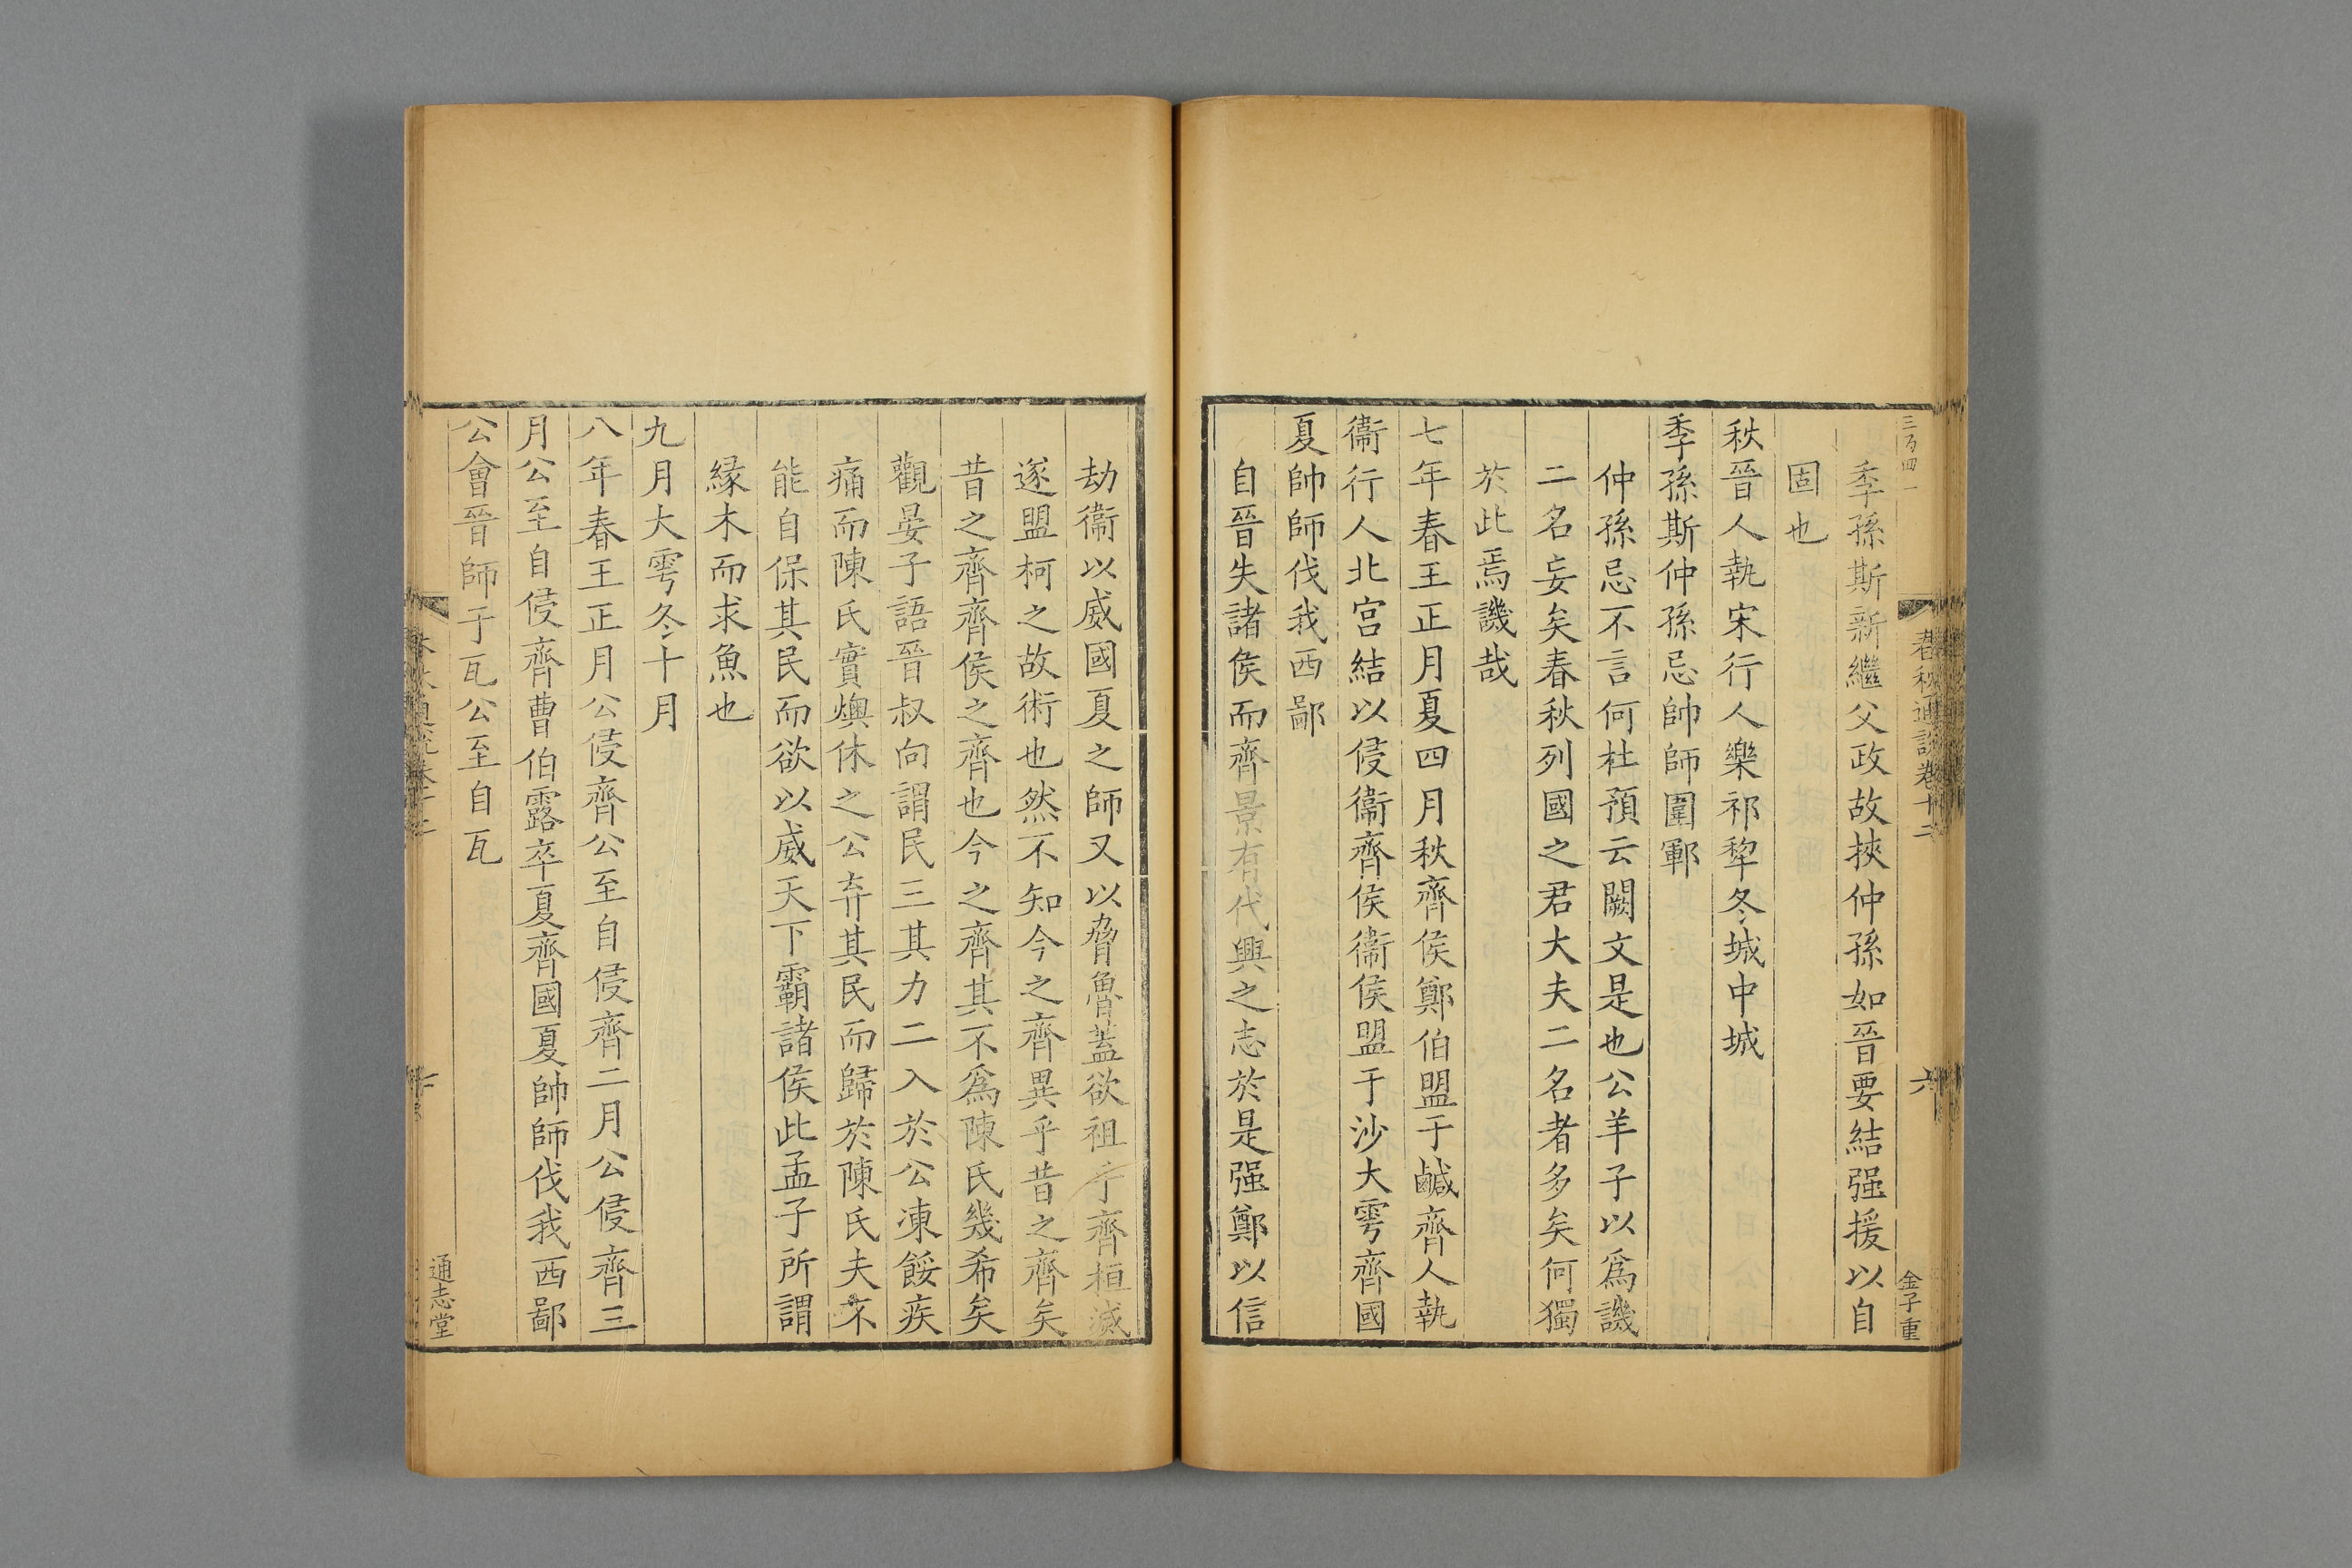 三百四一
春秋通說卷十二
六
金子重
季孫斯新繼父政故挾仲孫如晉要結强援以自
固也
秋晉人執宋行人樂祁犂冬城中城
季孫斯仲孫忌帥師圍鄆
仲孫忌不言何杜預云闕文是也公羊子以爲譏
二名妄矣春秋列國之君大夫二名者多矣何獨
於此焉譏哉
七年春王正月夏四月秋齊侯鄭伯盟于鹹齊人執
衞行人北宮結以侵衞齊侯衞侯盟于沙大雩齊國
夏帥師伐我西鄙
自晉失諸侯而齊景有代興之志於是强鄭以信
劫衞以威國夏之師又以脅魯蓋欲祖乎齊桓滅
遂盟柯之故術也然不知今之齊異乎昔之齊矣
昔之齊齊侯之齊也今之齊其不爲陳氏幾希矣
觀晏子語晉叔向謂民三其力二入於公凍餒疾
痛而陳氏實燠休之公弃其民而歸於陳氏夫不
能自保其民而欲以威天下霸諸侯此孟子所謂
緣木而求魚也
九月大雩冬十月
八年春王正月公侵齊公至自侵齊二月公侵齊三
月公至自侵齊曹伯露卒夏齊國夏帥師伐我西鄙
公會晉師于瓦公至自瓦
通志堂